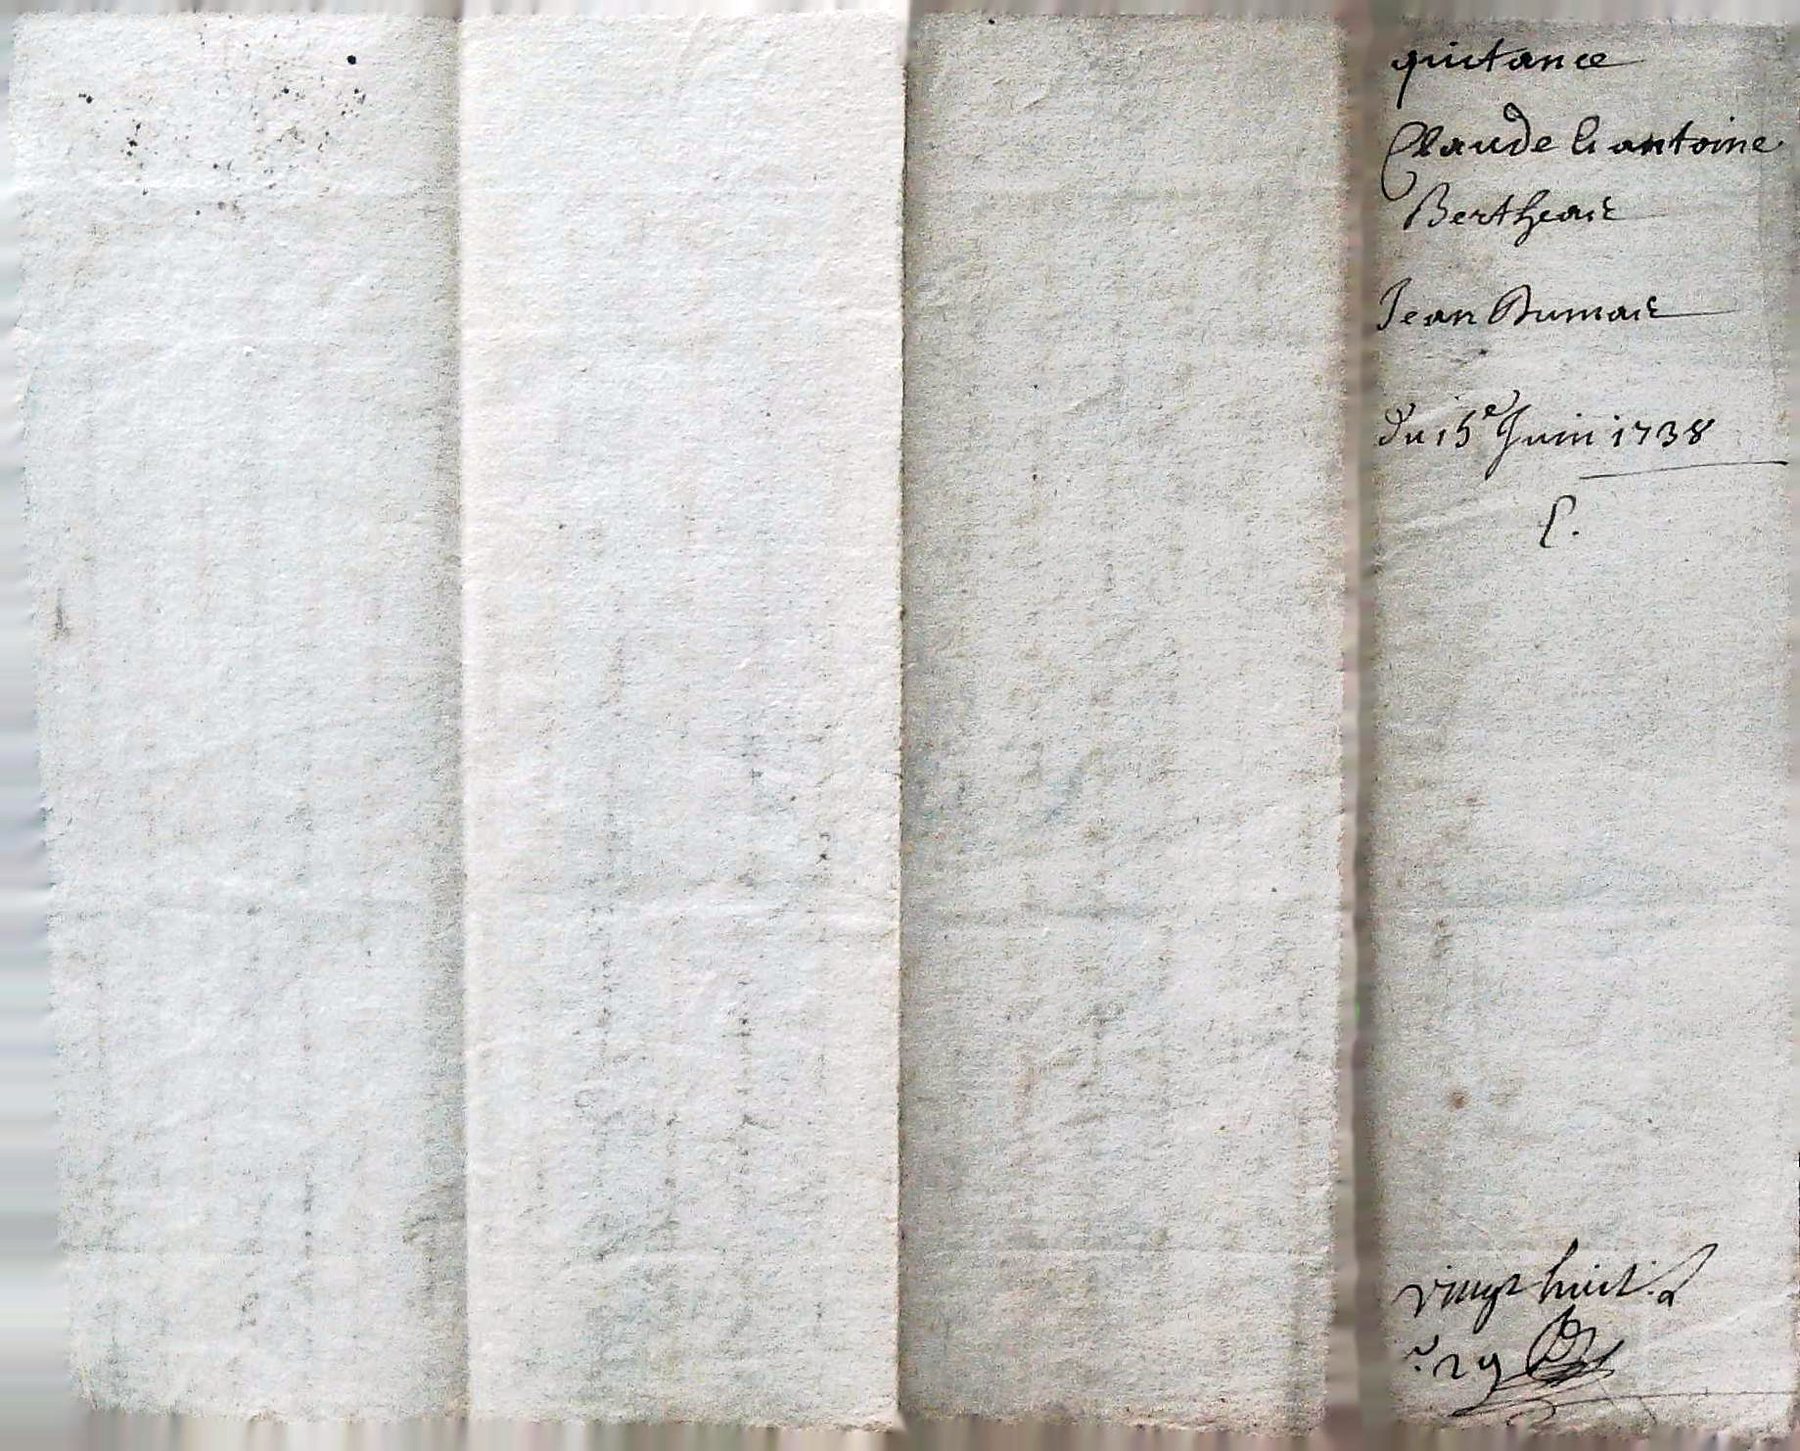 quictance
Claude & antoine
Bertheaic
Jean Dumaic
du 15e Juin 1738
C.
vingt huict
29